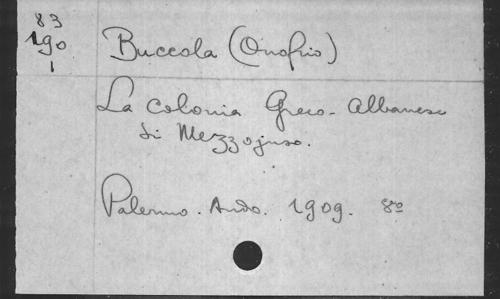 83
190
1
Buccola (Onofrio)
La colonia Greco-Albanese
di Mezzojuso.
Palermo. Ando. 1909. 8º